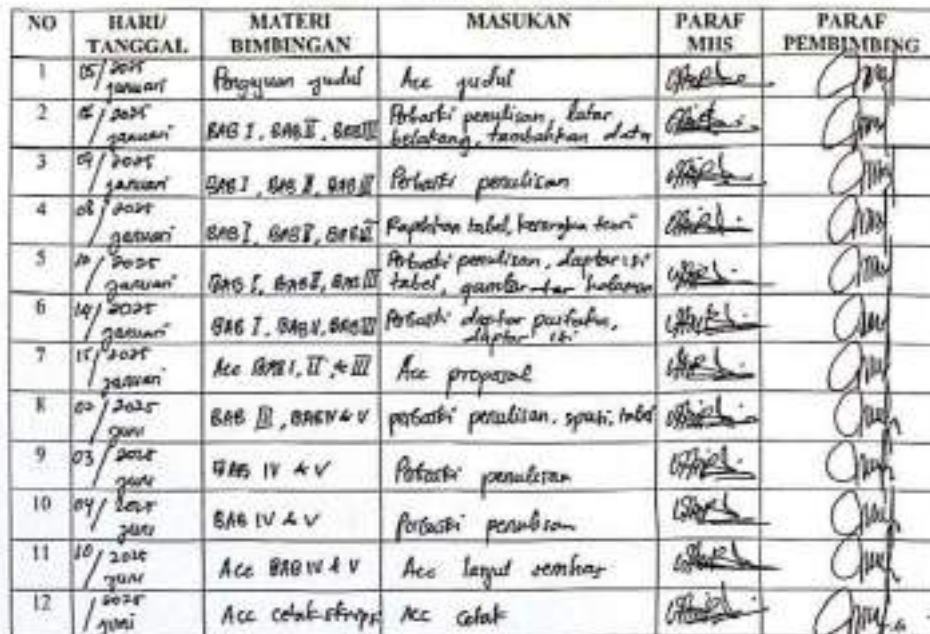 NO HARI/ TANGGAL MATERI BIMBINGAN MASUKAN PARAF MHS PARAF PEMBIMBING
1 05/2025 januari Pengajuan judul Acc judul
2 2025 januari BAB I, BAB II, BAB III Perbaiki penulisan, latar belakang, tambahkan data
3 2025 januari BAB I, BAB II, BAB III Perbaiki penulisan
4 08/2025 januari BAB I, BAB II, BAB III Rapihkan tabel, kerangka teori
5 10/2025 januari BAB I, BAB II, BAB III Perbaiki penulisan, daptar isi tabel, gambar halaman
6 14/2025 januari BAB I, BAB II, BAB III Perbaiki daptar pustaka, daptar isi
7 15/2025 januari Acc BAB I, II & III Acc proposal
8 02/2025 juni BAB III, BAB IV & V perbaiki penulisan, spasi, tabel
9 03/2025 juni BAB IV & V Perbaiki penulisan
10 04/2025 juni BAB IV & V Perbaiki penulisan
11 10/2025 juni Acc BAB IV & V Acc lanjut semhas
12 /2025 juni Acc cetak skripsi Acc cetak